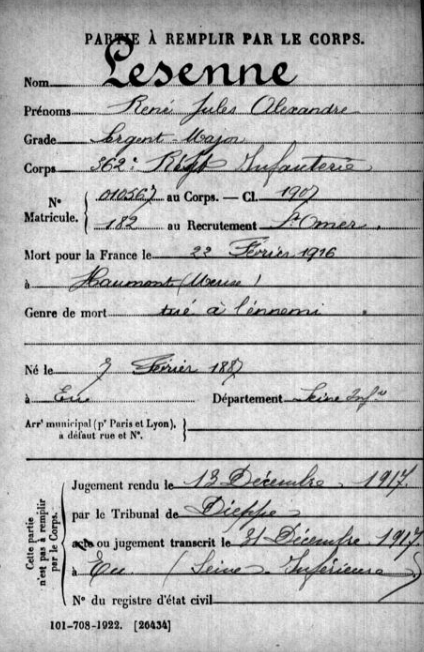 PARTIE À REMPLIR PAR LE CORPS.
Nom Lesenne
Prénoms René Jules Alexandre
Grade Sergent-Major
Corps 362e Rgt Infanterie
N° Matricule. { 010567 au Corps. — Cl. 1907
182 au Recrutement St Omer.
Mort pour la France le 22 Février 1916
à Haumont (Meuse)
Genre de mort tué à l'ennemi.
Né le 7 Février 1887
à Eu Département Seine Infre
Arrt municipal (pr Paris et Lyon), à défaut rue et N°. }
Cette partie n'est pas à remplir par le Corps.
Jugement rendu le 13 Décembre 1917.
par le Tribunal de Dieppe
acte ou jugement transcrit le 31 Décembre 1917
à Eu (Seine Inférieure)
N° du registre d'état civil
101-708-1922. [26434]